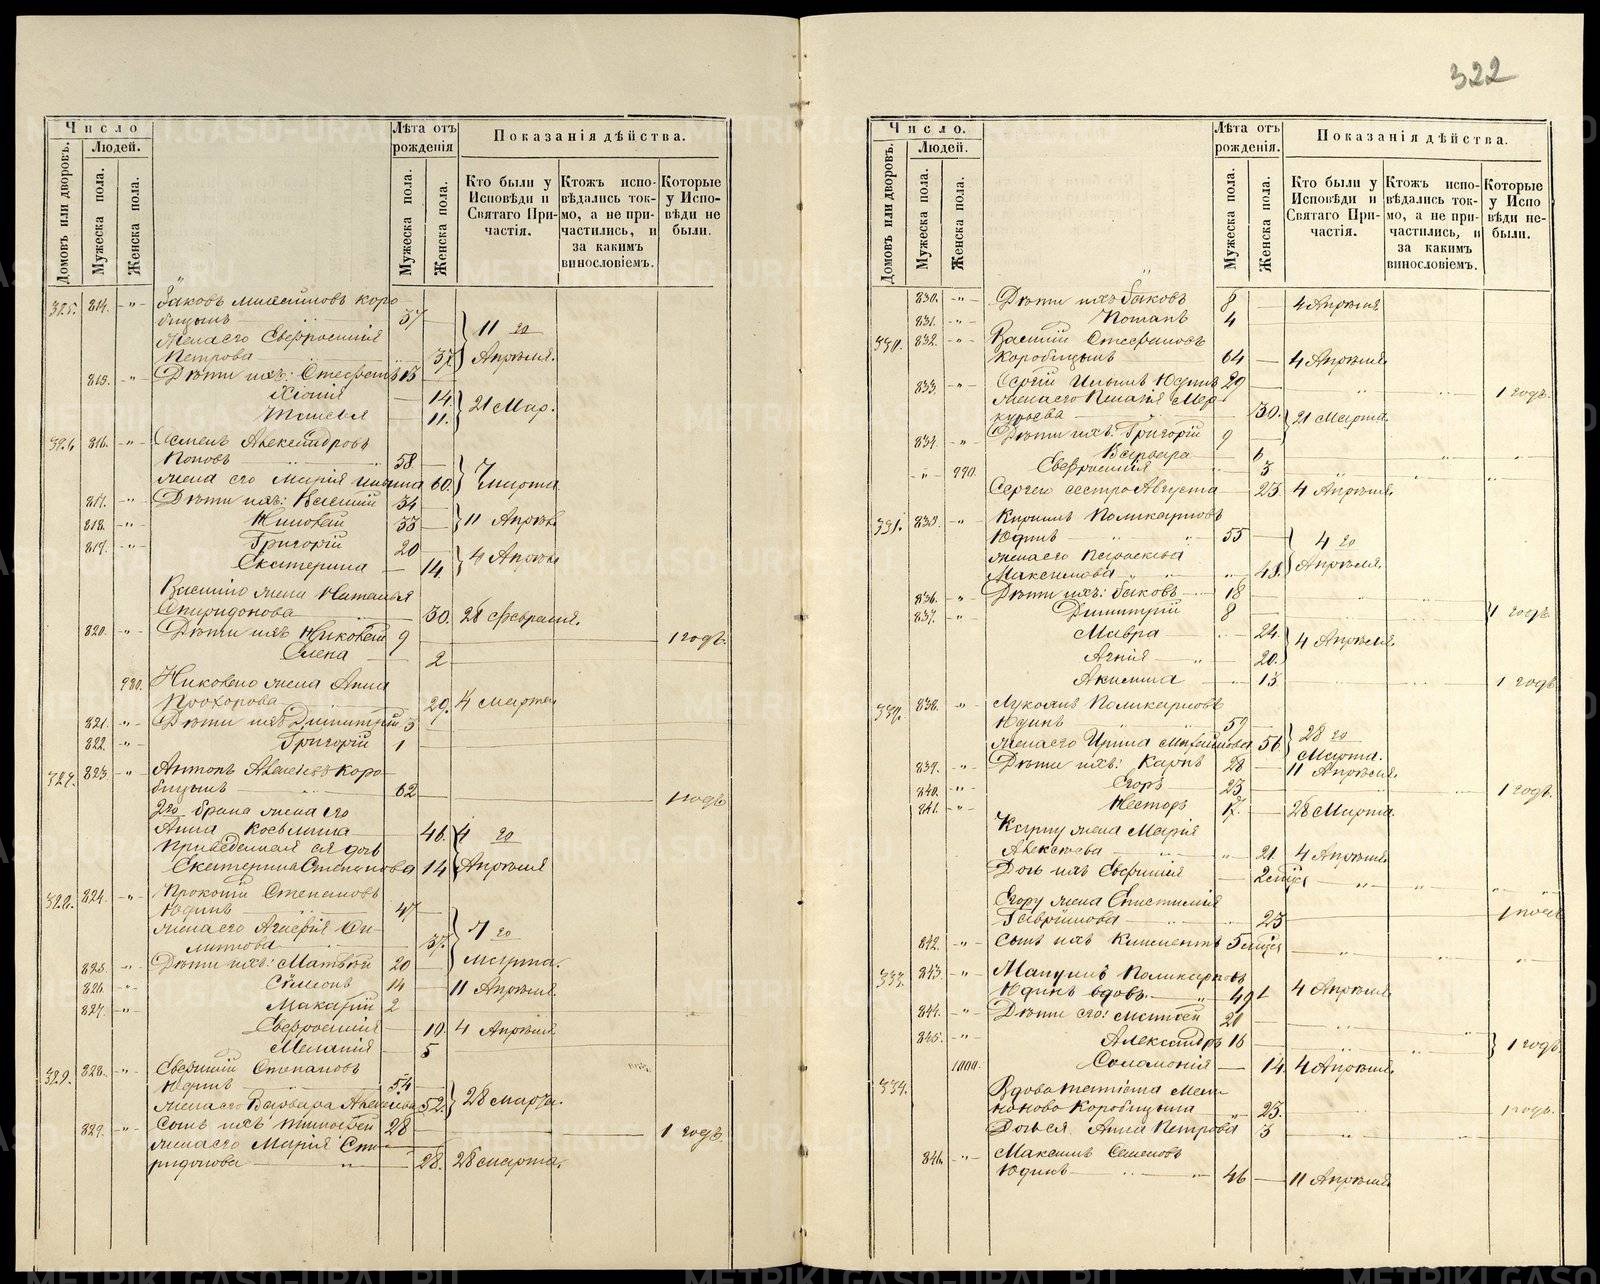 322
Число
Лѣта отъ рожденія
Показанія дѣйства.
Людей.
Домовъ или дворовъ.
Мужеска пола.
Женска пола.
Мужеска пола.
Женска пола.
Кто были у Исповѣди и Святаго Причастія.
Ктожъ исповѣдались токмо, а не причастились, и за какимъ винословіемъ.
Которые у Исповѣди не были.
325. 814. -"- Іаковъ Михайловъ Коро-
бицынъ 37 11 го
Жена его Евфросинія
Петрова 37. Апрѣля.
815. -"- Дѣти ихъ: Стефанъ 15
Хіонія 14. 21 Мар.
11.
326 816. -"- Семенъ Александровъ
Поповъ 58 7
Жена его Марія Ильина 60. марта
817. -"- Дѣти ихъ: Василій 34
818. -"- Николай 33 11 Апрѣля
819. -"- Григорій 20
Екатерина 14. 4 Апрѣля
Василію жена Наталья
Спиридонова 30. 28 февраля.
820. -"- Дѣти ихъ Николай 9 1 годъ.
Елена 2
980. Николаю жена Анна
Прохорова 29. 4 марта
821. -"- Дѣти ихъ Димитрій 3
822. -"- Григорій 1
327. 823. -"- Антонъ Алексѣевъ Коро-
бицынъ 62 1 годъ
2го брака жена его
Анна Козьмина 46. 4 го
Приведенная ея дочь
Екатерина Степанова 14 Апрѣля
328. 824. -"- Прокопій Степановъ
Юдинъ 47
Жена его 37. 7 го
марта.
825. -"- Дѣти ихъ: Матвей 20
826. -"- Симеонъ 14 11 Апрѣля.
827. -"- Макарій 2
Евфросинія 19. 4 Апрѣля
Меланія 5
329. 828. -"- Евфимій Степановъ
Юдинъ 54
Жена его Варвара Алексѣева 52. 28 марта.
829. -"- Сынъ ихъ Тимофей 28 1 годъ.
Жена его Марія Спи-
ридонова 28. 28 марта.
Число.
Лѣта отъ рожденія.
Показанія дѣйства.
Людей.
Домовъ или дворовъ.
Мужеска пола.
Женска пола.
Мужеска пола.
Женска пола.
Кто были у Исповѣди и Святаго Причастія.
Ктожъ исповѣдались токмо, а не причастились, и за какимъ винословіемъ.
Которые у Исповѣди небыли.
830. -"- Дѣти ихъ Іаковъ 8 4 Апрѣля
831. -"- Потапъ 4
330. 832. -"- Василій Стефановъ
Коробицынъ 64 4 Апрѣля.
833. -"- Сергій Ильинъ Юдинъ 29 1 годъ.
Жена его Пелагія Мер-
курьева 30. 21 марта.
834. -"- Дѣти ихъ: Григорій 9
Варвара 6
990. Евфросинія 3
Сергею сестра Августа 23 4 Апрѣля.
331. 835. -"- Кириллъ Поликарповъ
Юдинъ 55 4 го
Жена его Параскева
Максимова 48. Апрѣля.
836. Дѣти ихъ: Іаковъ 18
837. -"- Димитрій 8 1 годъ.
Мавра 24.
Агнія 20. 4 Апрѣля.
Акилина 13 1 годъ
332. 838. -"- Лукоянъ Поликарповъ
Юдинъ 59 28 го
Жена его Ирина Михайлова 56 Марта.
839. -"- Дѣти ихъ: Карпъ 28 11 Апрѣля.
840. -"- Егоръ 23 1 годъ.
841. -"- Несторъ 17. 28 Марта.
Карпу жена Марія
Алексѣева 21. 4 Апрѣля.
Дочь ихъ Евфимія 2 мѣся
Егору жена Епистимія
Гавриилова 23
842. -"- Сынъ ихъ Климентъ 5 мѣся
333. 843. -"- Мануилъ Поликарповъ
Юдинъ вдовъ. 49 4 Апрѣля.
844. -"- Дѣти его: Матвей 20
845. -"- Александръ 16 1 годъ.
1000. Саламонія 14. 4 Апрѣля.
334. Вдова
Коробицына 23. 1 годъ.
Дочь ея Анна Петрова 3
846. -"- Максимъ Семеновъ
Юдинъ 46 11 Апрѣля.